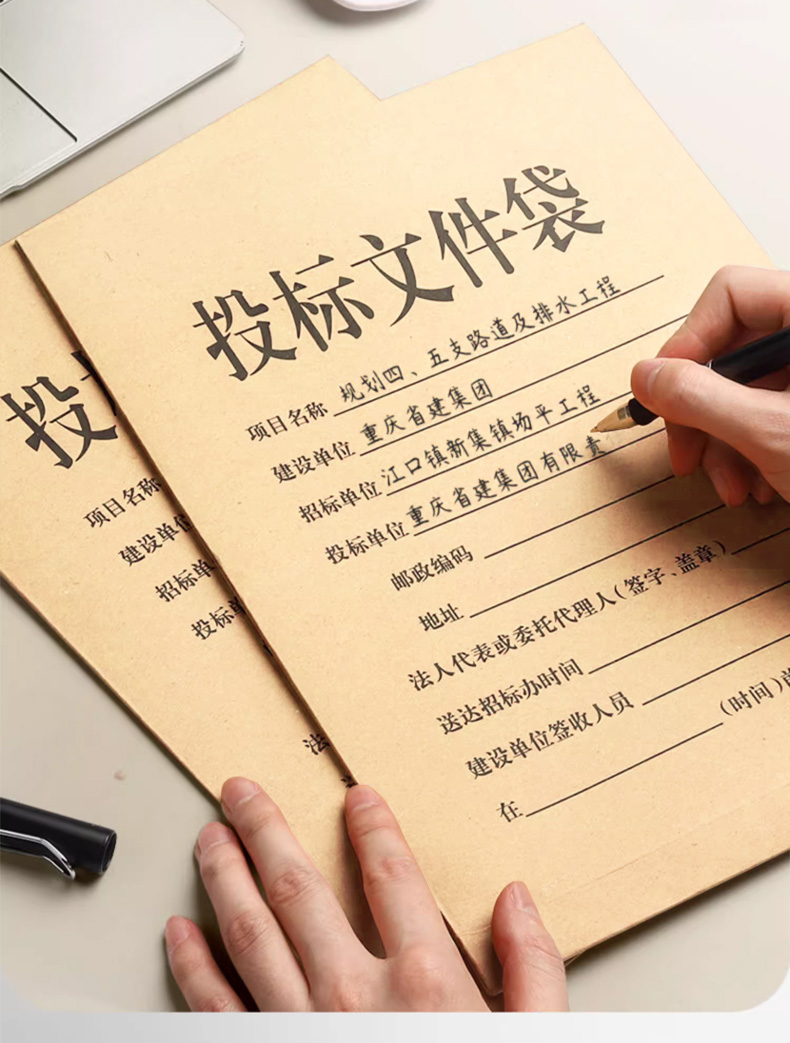 投标文件袋
项目名称 规划四、五支路道及排水工程
建设单位 重庆省建集团
招标单位 江口镇新集镇场平工程
投标单位 重庆省建集团有限责
邮政编码
地址
法人代表或委托代理人(签字、盖章)
送达招标办时间
建设单位签收人员
在 (时间)前
投
项目名称
建设单位
招标单
投标单
法